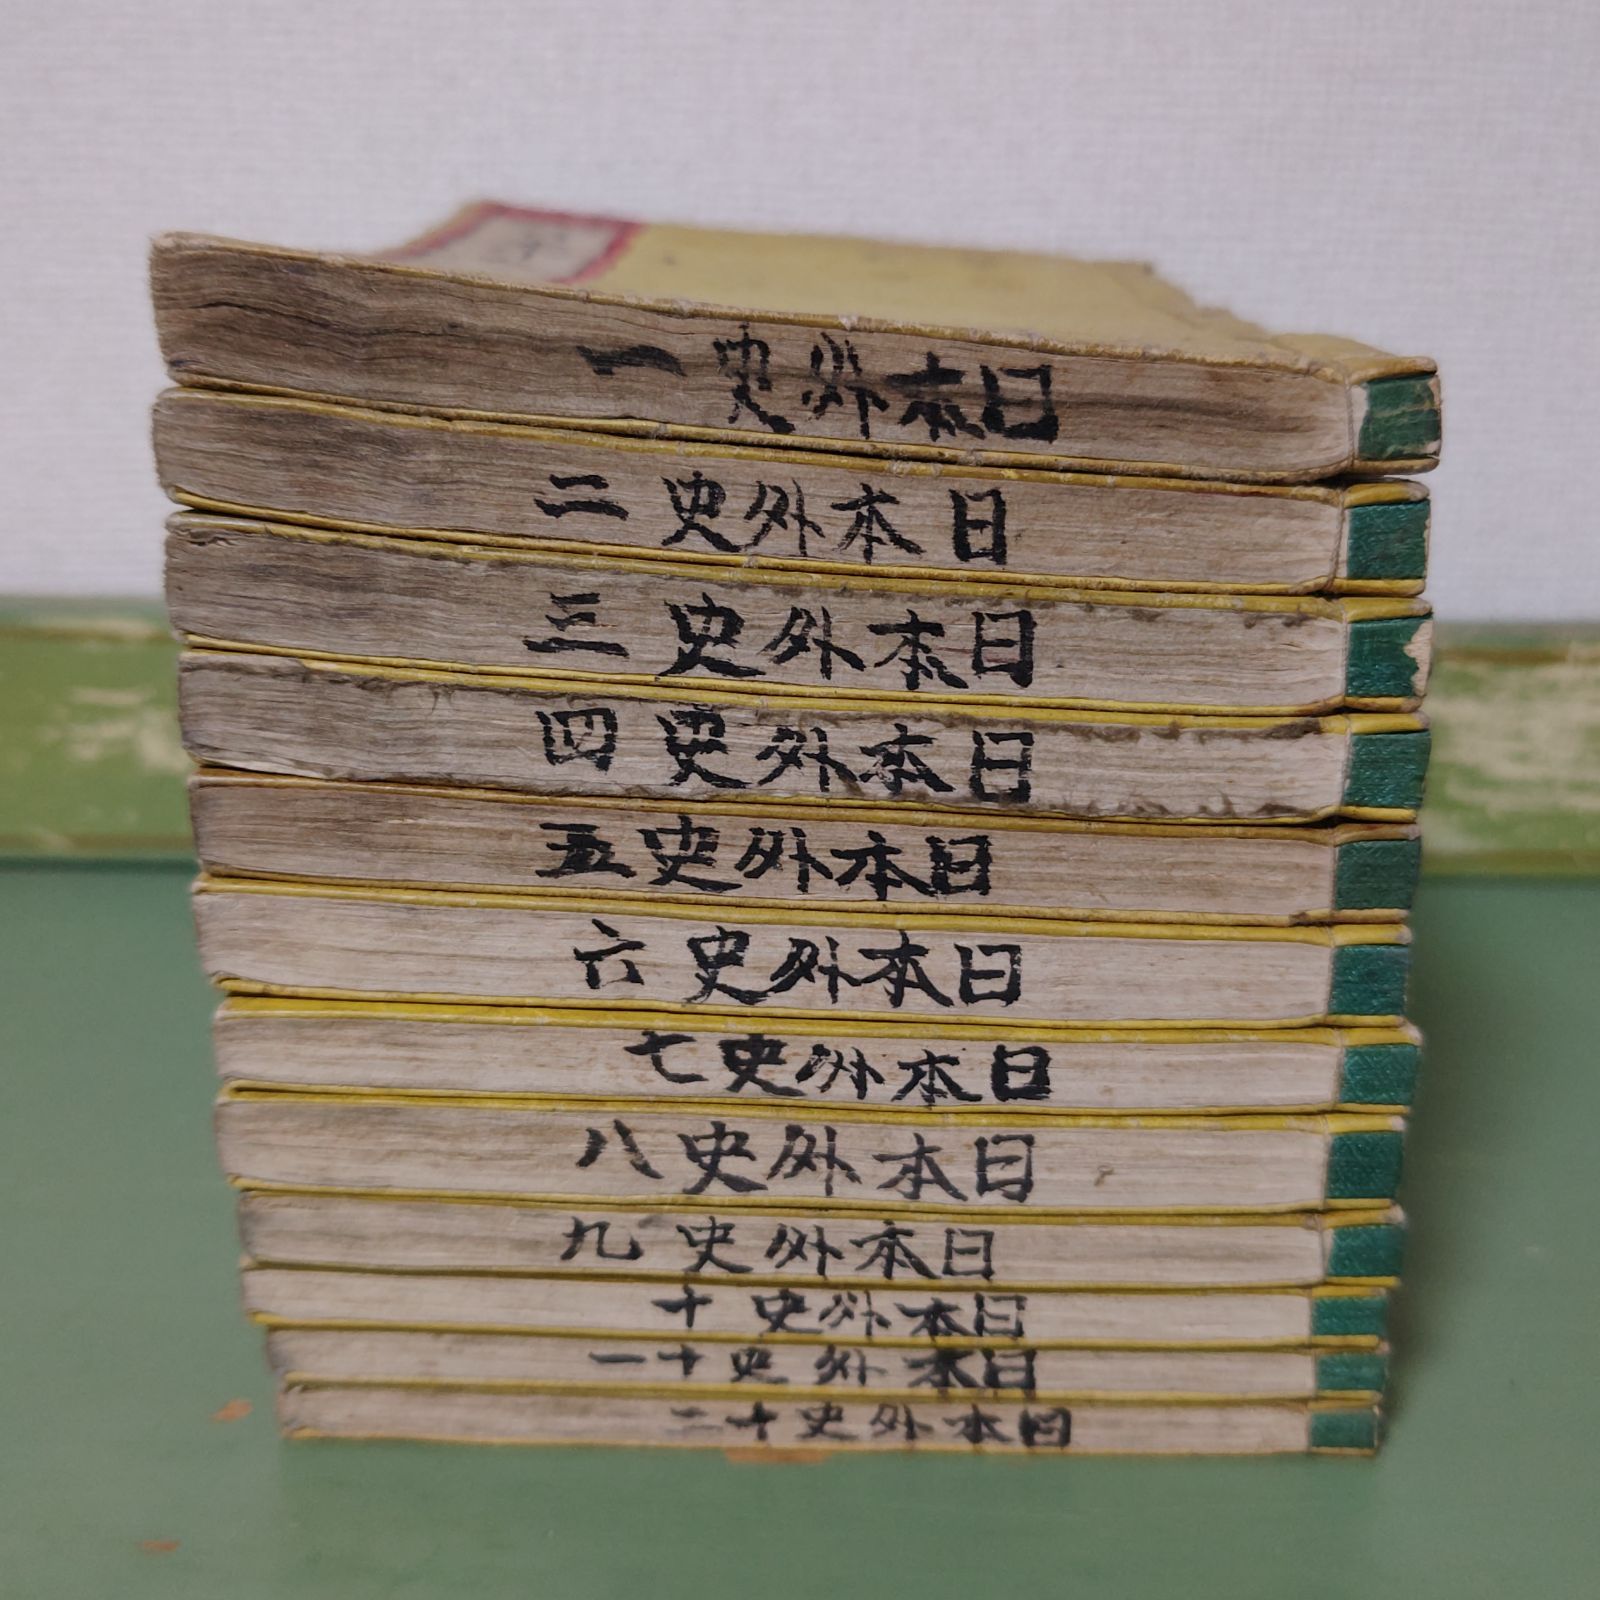 日本外史一
日本外史二
日本外史三
日本外史四
日本外史五
日本外史六
日本外史七
日本外史八
日本外史九
日本外史十
日本外史十一
日本外史十二